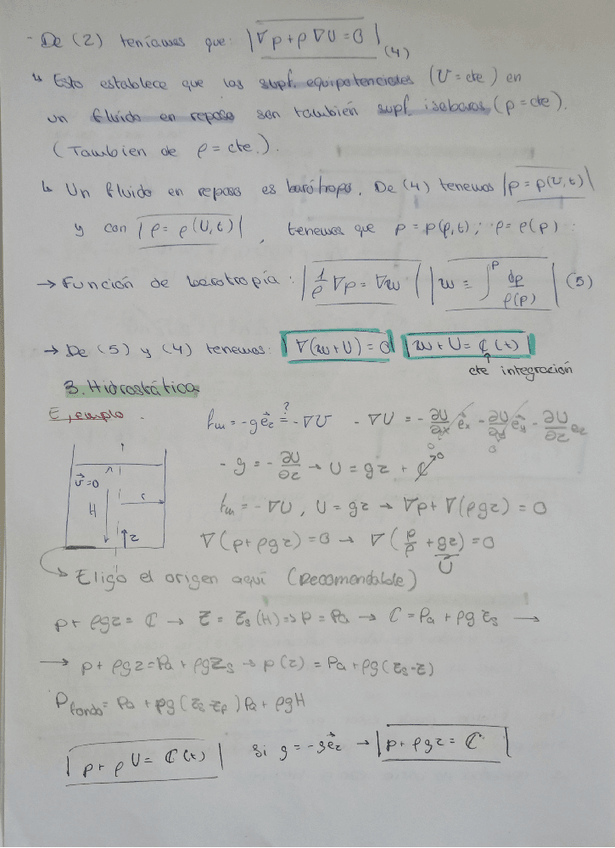 - De (2) teníamos que: |∇p + ρ∇U = 0| (4)
↳ Esto establece que las supf. equipotenciales (U = cte) en
un fluido en reposo son también supf. isobaras (p = cte).
(Tambien de ρ = cte.).
↳ Un fluido en reposo es barótropo. De (4) tenemos |p = p(U,t)|
y con |ρ = ρ(U,t)|, tenemos que p = p(ρ,t); ρ = ρ(p).
→ Función de barotropía: |1/ρ ∇p = ∇w| |w = ∫^p dp/ρ(p)| (5)
→ De (5) y (4) tenemos: |∇(w+U) = 0| |w+U = C(t)|
cte integración
3. Hidrostática
Ejemplo.
fm = -g e⃗z =? -∇U   -∇U = -∂U/∂x e⃗x - ∂U/∂y e⃗y - ∂U/∂z ez
0 0
-g = -∂U/∂z → U = gz + C 0
v⃗=0
H
r
z
fm = -∇U, U = gz → ∇p + ∇(ρgz) = 0
∇(p+ρgz) = 0 → ∇(p/ρ + gz) = 0
U
Eligo el origen aquí (Recomendable)
p + ρgz = C → z = zs (H) => p = Pa → C = Pa + ρg zs →
→ p + ρgz = Pa + ρgzs → p(z) = Pa + ρg(zs-z)
Pfondo = Pa + ρg(zs-zf) Pa + ρgH
|p + ρU = C(t)|   Si g = -g e⃗z → |p + ρgz = C|